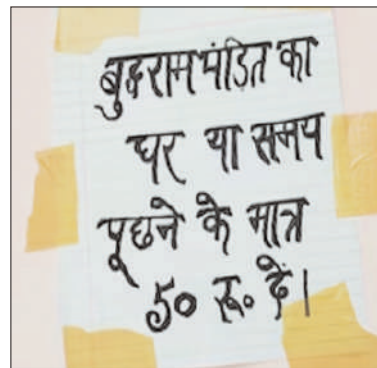 बुद्धराम पंडित का
घर या समय
पूछने के मात्र
50 रू. दें।